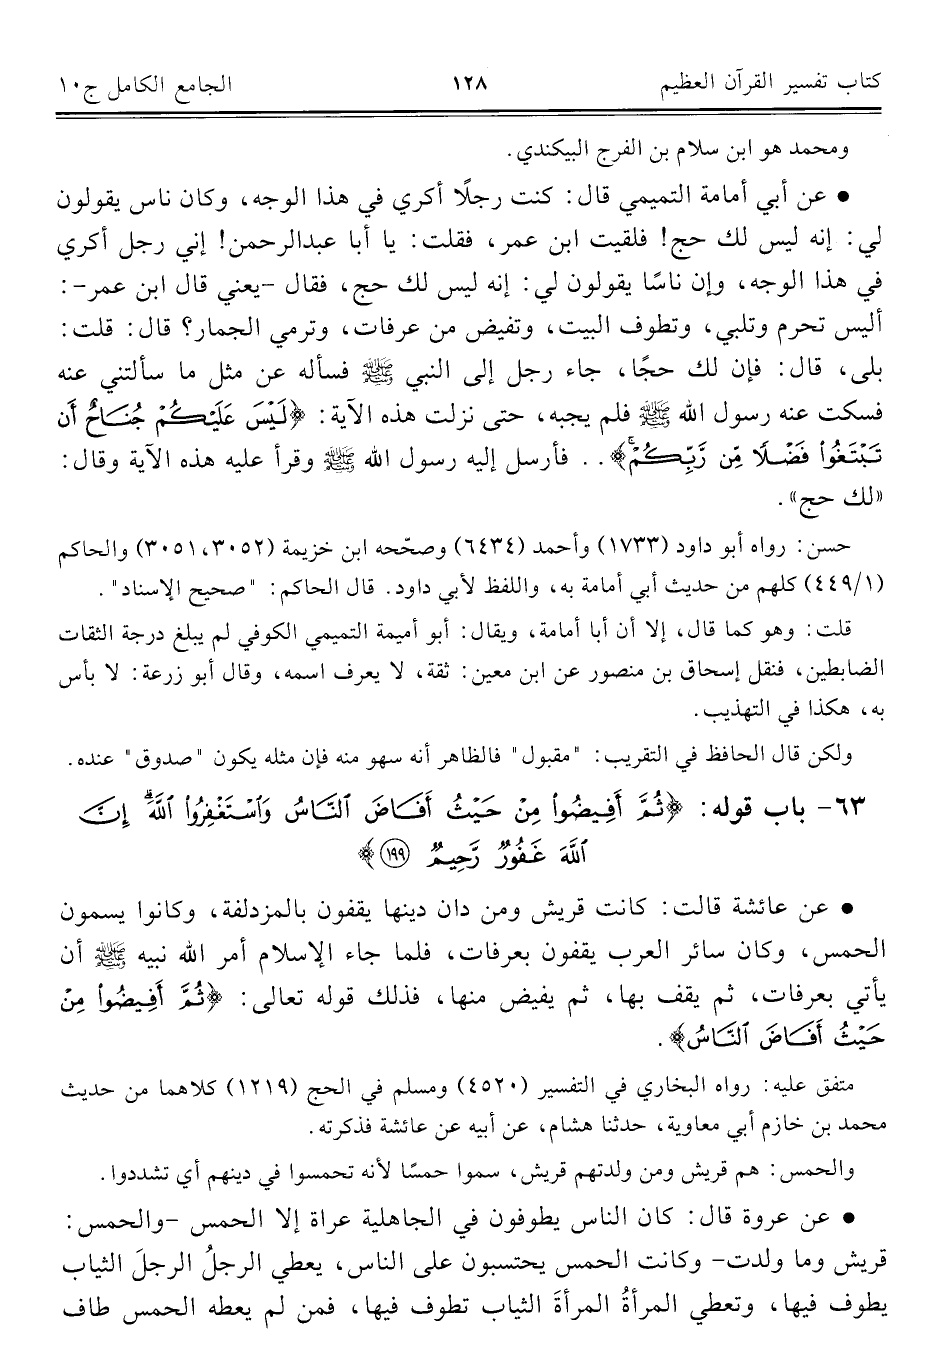 كتاب تفسير القرآن العظيم ١٢٨ الجامع الكامل ج١٠
ومحمد هو ابن سلام بن الفرج البيكندي.
• عن أبي أمامة التميمي قال: كنت رجلًا أكري في هذا الوجه، وكان ناس يقولون
لي: إنه ليس لك حج! فلقيت ابن عمر، فقلت: يا أبا عبدالرحمن! إني رجل أكري
في هذا الوجه، وإن ناسًا يقولون لي: إنه ليس لك حج، فقال -يعني قال ابن عمر-:
أليس تحرم وتلبي، وتطوف البيت، وتفيض من عرفات، وترمي الجمار؟ قال: قلت:
بلى، قال: فإن لك حجًا، جاء رجل إلى النبي ﷺ فسأله عن مثل ما سألتني عنه
فسكت عنه رسول الله ﷺ فلم يجبه، حتى نزلت هذه الآية: ﴿لَيْسَ عَلَيْكُمْ جُنَاحٌ أَن
تَبْتَغُوا۟ فَضْلًا مِّن رَّبِّكُمْ ۚ﴾.. فأرسل إليه رسول الله ﷺ وقرأ عليه هذه الآية وقال:
«لك حج».
حسن: رواه أبو داود (١٧٣٣) وأحمد (٦٤٣٤) وصحّحه ابن خزيمة (٣٠٥١،٣٠٥٢) والحاكم
(٤٤٩/١) كلهم من حديث أبي أمامة به، واللفظ لأبي داود. قال الحاكم: "صحيح الإسناد".
قلت: وهو كما قال، إلا أن أبا أمامة، ويقال: أبو أميمة التميمي الكوفي لم يبلغ درجة الثقات
الضابطين، فنقل إسحاق بن منصور عن ابن معين: ثقة، لا يعرف اسمه، وقال أبو زرعة: لا بأس
به، هكذا في التهذيب.
ولكن قال الحافظ في التقريب: "مقبول" فالظاهر أنه سهو منه فإن مثله يكون "صدوق" عنده.
٦٣- باب قوله: ﴿ثُمَّ أَفِيضُوا۟ مِنْ حَيْثُ أَفَاضَ ٱلنَّاسُ وَٱسْتَغْفِرُوا۟ ٱللَّهَ ۚ إِنَّ
ٱللَّهَ غَفُورٌ رَّحِيمٌ ١٩٩﴾
• عن عائشة قالت: كانت قريش ومن دان دينها يقفون بالمزدلفة، وكانوا يسمون
الحمس، وكان سائر العرب يقفون بعرفات، فلما جاء الإسلام أمر الله نبيه ﷺ أن
يأتي بعرفات، ثم يقف بها، ثم يفيض منها، فذلك قوله تعالى: ﴿ثُمَّ أَفِيضُوا۟ مِنْ
حَيْثُ أَفَاضَ ٱلنَّاسُ﴾.
متفق عليه: رواه البخاري في التفسير (٤٥٢٠) ومسلم في الحج (١٢١٩) كلاهما من حديث
محمد بن خازم أبي معاوية، حدثنا هشام، عن أبيه عن عائشة فذكرته.
والحمس: هم قريش ومن ولدتهم قريش، سموا حمسًا لأنه تحمسوا في دينهم أي تشددوا.
• عن عروة قال: كان الناس يطوفون في الجاهلية عراة إلا الحمس -والحمس:
قريش وما ولدت- وكانت الحمس يحتسبون على الناس، يعطي الرجلُ الرجلَ الثياب
يطوف فيها، وتعطي المرأةُ المرأةَ الثياب تطوف فيها، فمن لم يعطه الحمس طاف